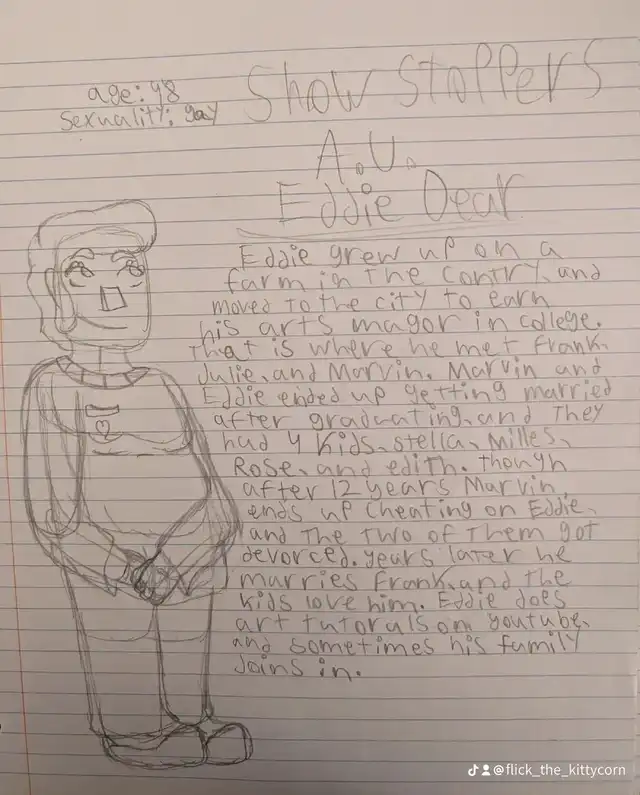 age: 48
Sexuality: gay
Show Stoppers
A.U.
Eddie Dear
Eddie grew up on a
farm in The contry, and
moved To the city to earn
his arts magor in college.
That is where he met Frank,
Julie, and Marvin. Marvin and
Eddie ended up getting married
after graduating, and They
had 4 kids, stella, Milles,
Rose, and edith. though
after 12 years Marvin
ends up cheating on Eddie,
and The Two of Them got
devorced. years later he
marries Frank, and the
kids love him. Eddie does
art tutorals on youtube,
and sometimes his family
Joins in.
@flick_the_kittycorn